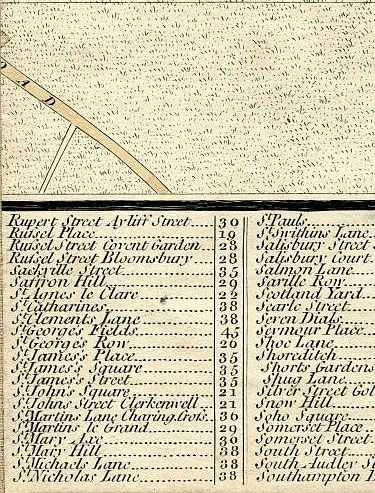 A D
Rupert Street Ayliff Street 30
Russel Place 19
Russel Street Covent Garden 28
Russel Street Bloomsbury 28
Sackville Street 35
Saffron Hill 29
St. Agnes le Clare 22
St. Catharines 38
St. Clements Lane 38
St. Georges Fields 45
St. Georges Row 20
St. James's Place 35
St. James's Square 35
St. James's Street 35
St. Johns Square 21
St. Johns Street Clerkenwell 21
St. Martins Lane Charing Crofs 36
St. Martins le Grand 29
St. Mary Axe 30
St. Mary Hill 38
St. Michaels Lane 38
St. Nicholas Lane 38
St. Pauls
St. Swithins Lane
Salisbury Street
Salisbury Court
Salmon Lane
Saville Row
Scotland Yard
Searle Street
Seven Dials
Seymour Place
Shoe Lane
Shoreditch
Shorts Gardens
Shug Lane
Silver Street Gol
Snow Hill
Soho Square
Somerset Place
Somerset Street
South Street
South Audley S
Southampton